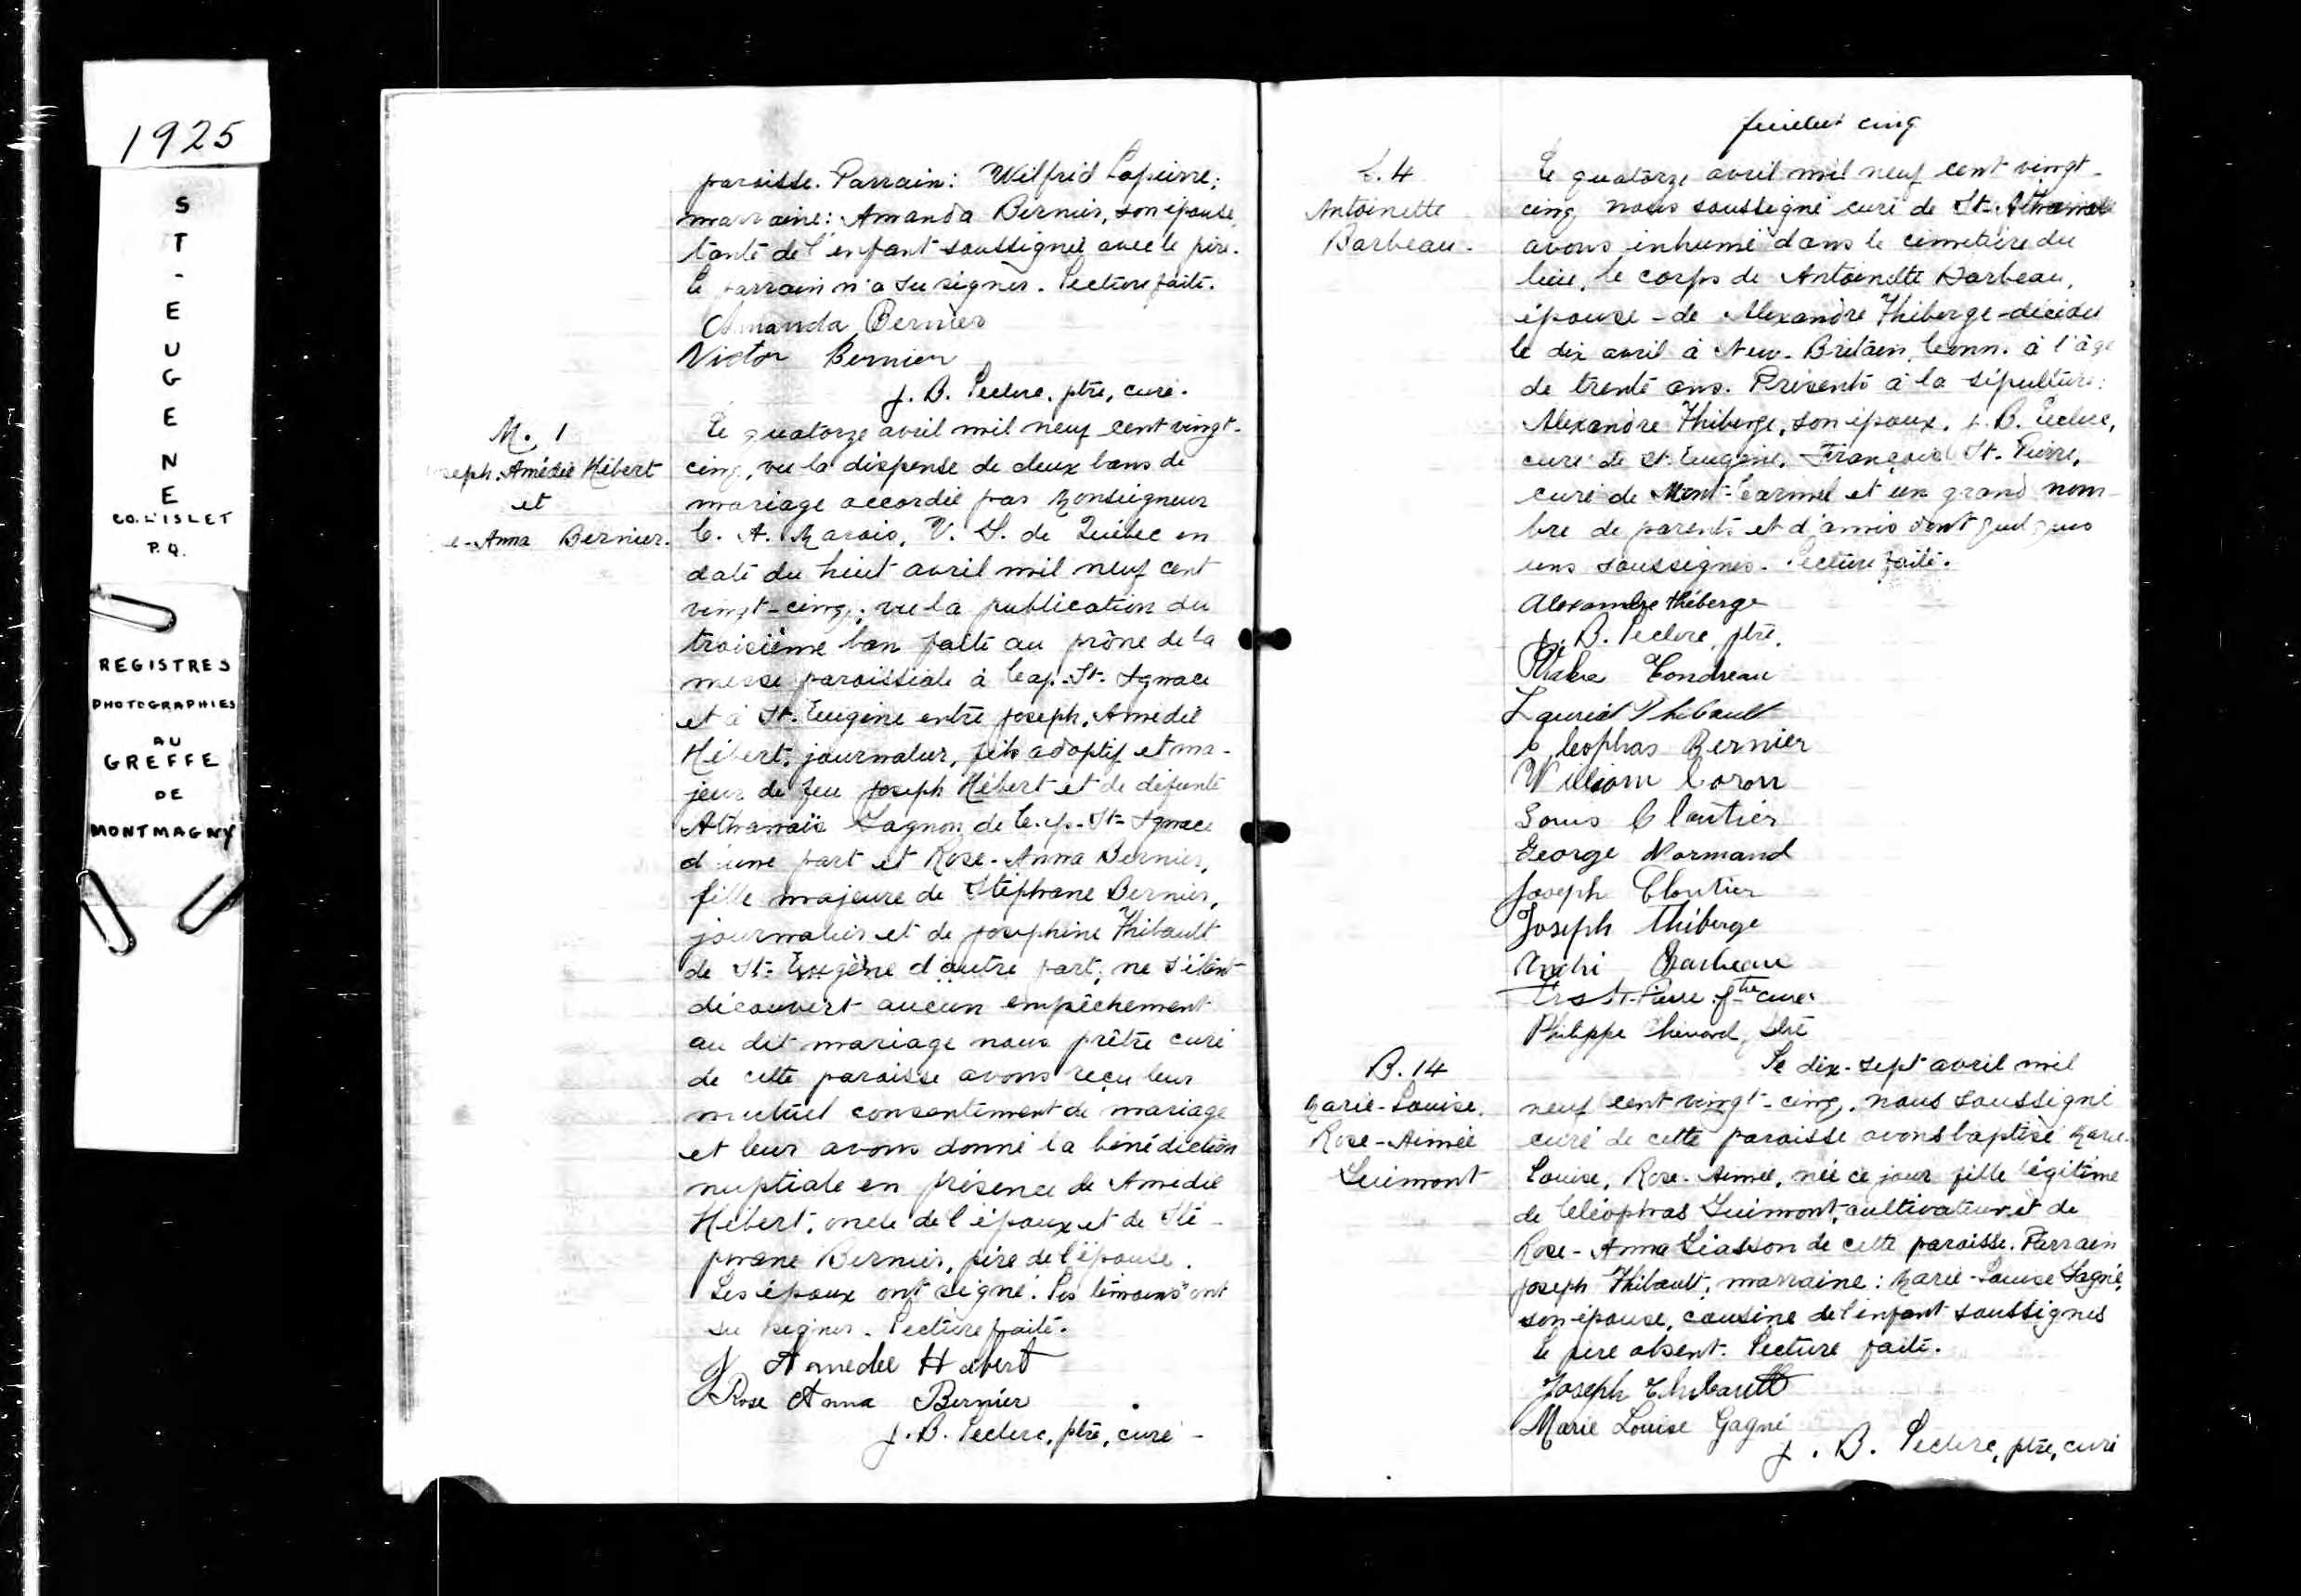 1925
ST-EUGENE
CO. L'ISLET
P.Q.
REGISTRES
PHOTOGRAPHIES
AU
GREFFE
DE
MONTMAGNY
paroisse. Parrain: Wilfrid Lapierre;
marraine: Amanda Bernier, son épouse,
tante de l'enfant soussignée avec le père.
Le parrain n'a su signer. Lecture faite.
Amanda Bernier
Victor Bernier
J. B. Leclerc, ptre, curé.
M. 1
Joseph, Amédée Hébert
et
e-Anna Bernier.
Le quatorze avril mil neuf cent vingt-
cinq, vu la dispense de deux bans de
mariage accordée par Monseigneur
C. A. Marois, V. G. de Québec en
date du huit avril mil neuf cent
vingt-cinq; vu la publication du
troisième ban faite au prône de la
messe paroissiale à Cap-St-Ignace
et à St-Eugène entre Joseph, Amédée
Hébert, journalier, fils adoptif et ma-
jeur de feu Joseph Hébert et de défunte
Athanaïs Gagnon de Cap-St-Ignace
d'une part et Rose-Anna Bernier,
fille majeure de Stéphane Bernier,
journalier et de Joséphine Thibault
de St-Eugène d'autre part; ne s'étant
découvert aucun empêchement
au dit mariage nous prêtre curé
de cette paroisse avons reçu leur
mutuel consentement de mariage
et leur avons donné la bénédiction
nuptiale en présence de Amédée
Hébert, oncle de l'époux et de Sté-
phane Bernier, père de l'épouse.
Les époux ont signé. Les témoins ont
su signer. Lecture faite.
J Amedee Hebert
Rose Anna Bernier
J. B. Leclerc, ptre, curé
feuillet cinq
S. 4
Antoinette
Barbeau.
Le quatorze avril mil neuf cent vingt-
cinq nous soussigné curé de St-
avons inhumé dans le cimetière du
lieu, le corps de Antoinette Barbeau,
épouse de Alexandre Théberge décédée
le dix avril à New-Britain, Conn. à l'âge
de trente ans. Présents à la sépulture:
Alexandre Théberge, son époux, J. B. Leclerc,
curé de St. Eugène, François St-Pierre,
curé de Mont-Carmel et un grand nom-
bre de parents et d'amis dont quelques
uns soussignés. Lecture faite.
Alexandre théberge
J. B. Leclerc, ptre.
Tondreau
Thibault
Cleophas Bernier
William Caron
Louis Cloutier
George Normand
Joseph Cloutier
Joseph théberge
André Barbeau
Frs St-Pierre ptre curé
Philippe Chénard, ptre
B. 14
Marie-Louise,
Rose-Aimée
Guimont
Le dix-sept avril mil
neuf cent vingt-cinq, nous soussigné
curé de cette paroisse avons baptisé Marie-
Louise, Rose-Aimée, née ce jour fille légitime
de Cléophas Guimont, cultivateur et de
Rose-Anna Liasson de cette paroisse. Parrain
Joseph Thibault, marraine: Marie-Louise Gagné,
son épouse, cousine de l'enfant soussignés
le père absent. Lecture faite.
Joseph Thibault
Marie Louise Gagné
J. B. Leclerc, ptre, curé